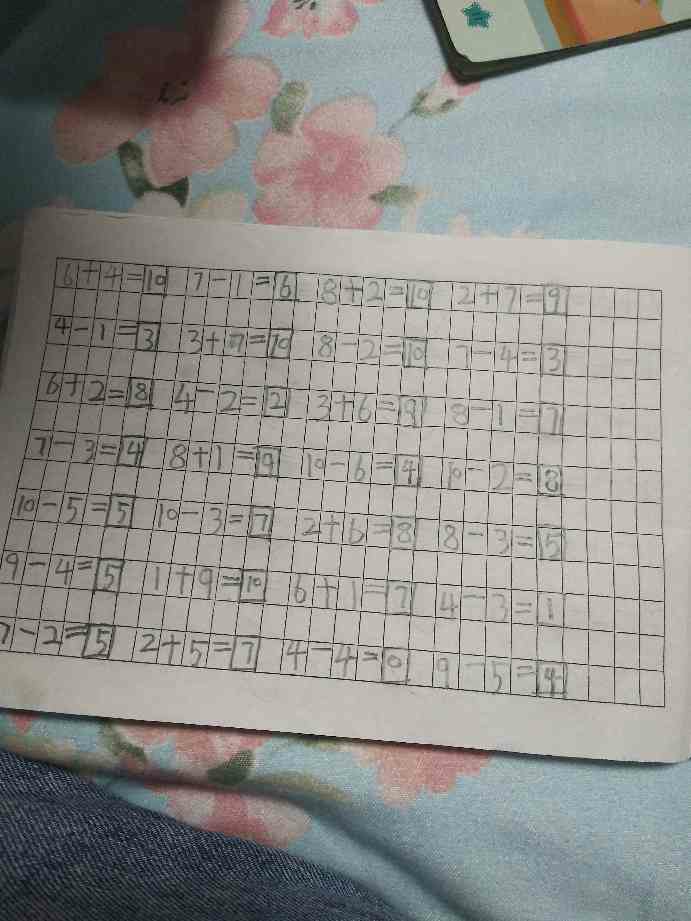 6+4=10 7-1=6 8+2=10 2+7=9
4-1=3 3+7=10 8-2=10 7-4=3
6+2=8 4-2=2 3+6=9 8-1=7
7-3=4 8+1=9 10-6=4 10-2=8
10-5=5 10-3=7 2+6=8 8-3=5
9-4=5 1+9=10 6+1=7 4-3=1
7-2=5 2+5=7 4-4=0 9-5=4